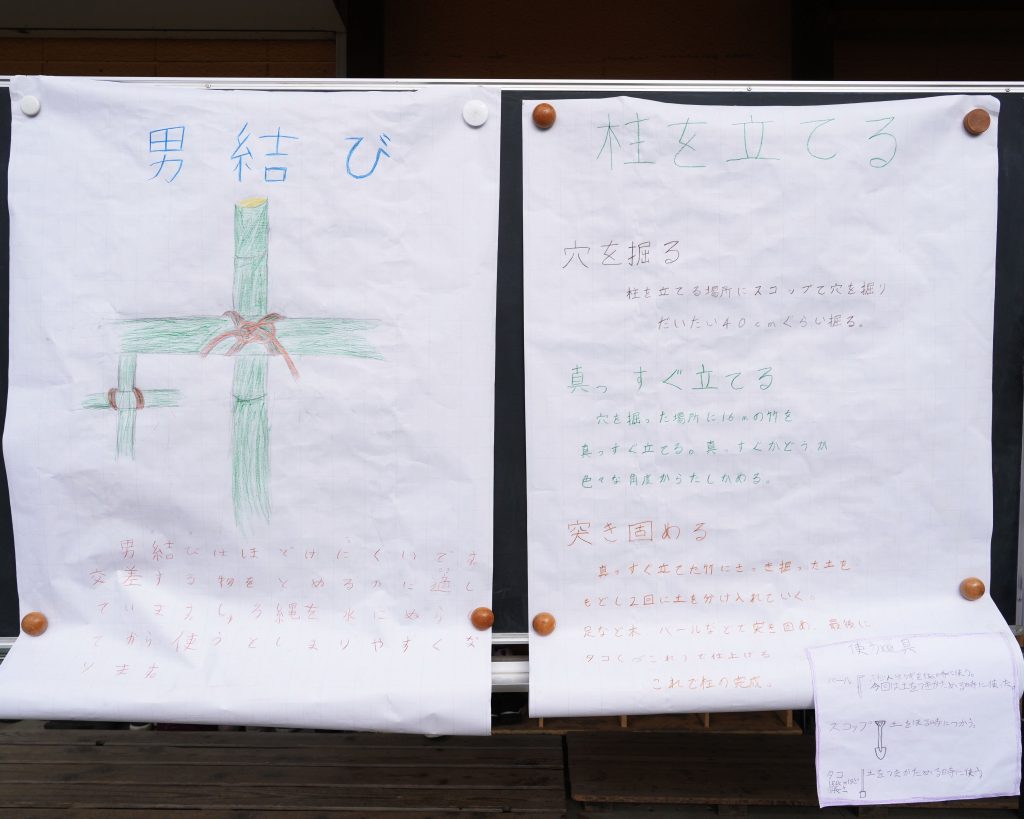 男結び
男結びはほどけにくいです。
交差する物をとめるのに適し
ています。しゅろ縄を水にぬら
してから使うとしまりやすくな
ります
柱を立てる
穴を掘る
柱を立てる場所にスコップで穴を掘り
だいたい40cmぐらい掘る。
真っすぐ立てる
穴を掘った場所に16mの竹を
真っすぐ立てる。真っすぐかどうか
色々な角度からたしかめる。
突き固める
真っすぐ立てた竹にさっき掘った土を
もどし2回に土を分け入れていく。
足など木 バールなどで突き固め 最後に
タコ( )で仕上げる
これで柱の完成。
使う道具
バール
時に使う。
今回は土をつきかためる時に使った。
スコップ 土をほる時につかう
タコ 土をつきかためる時に使う